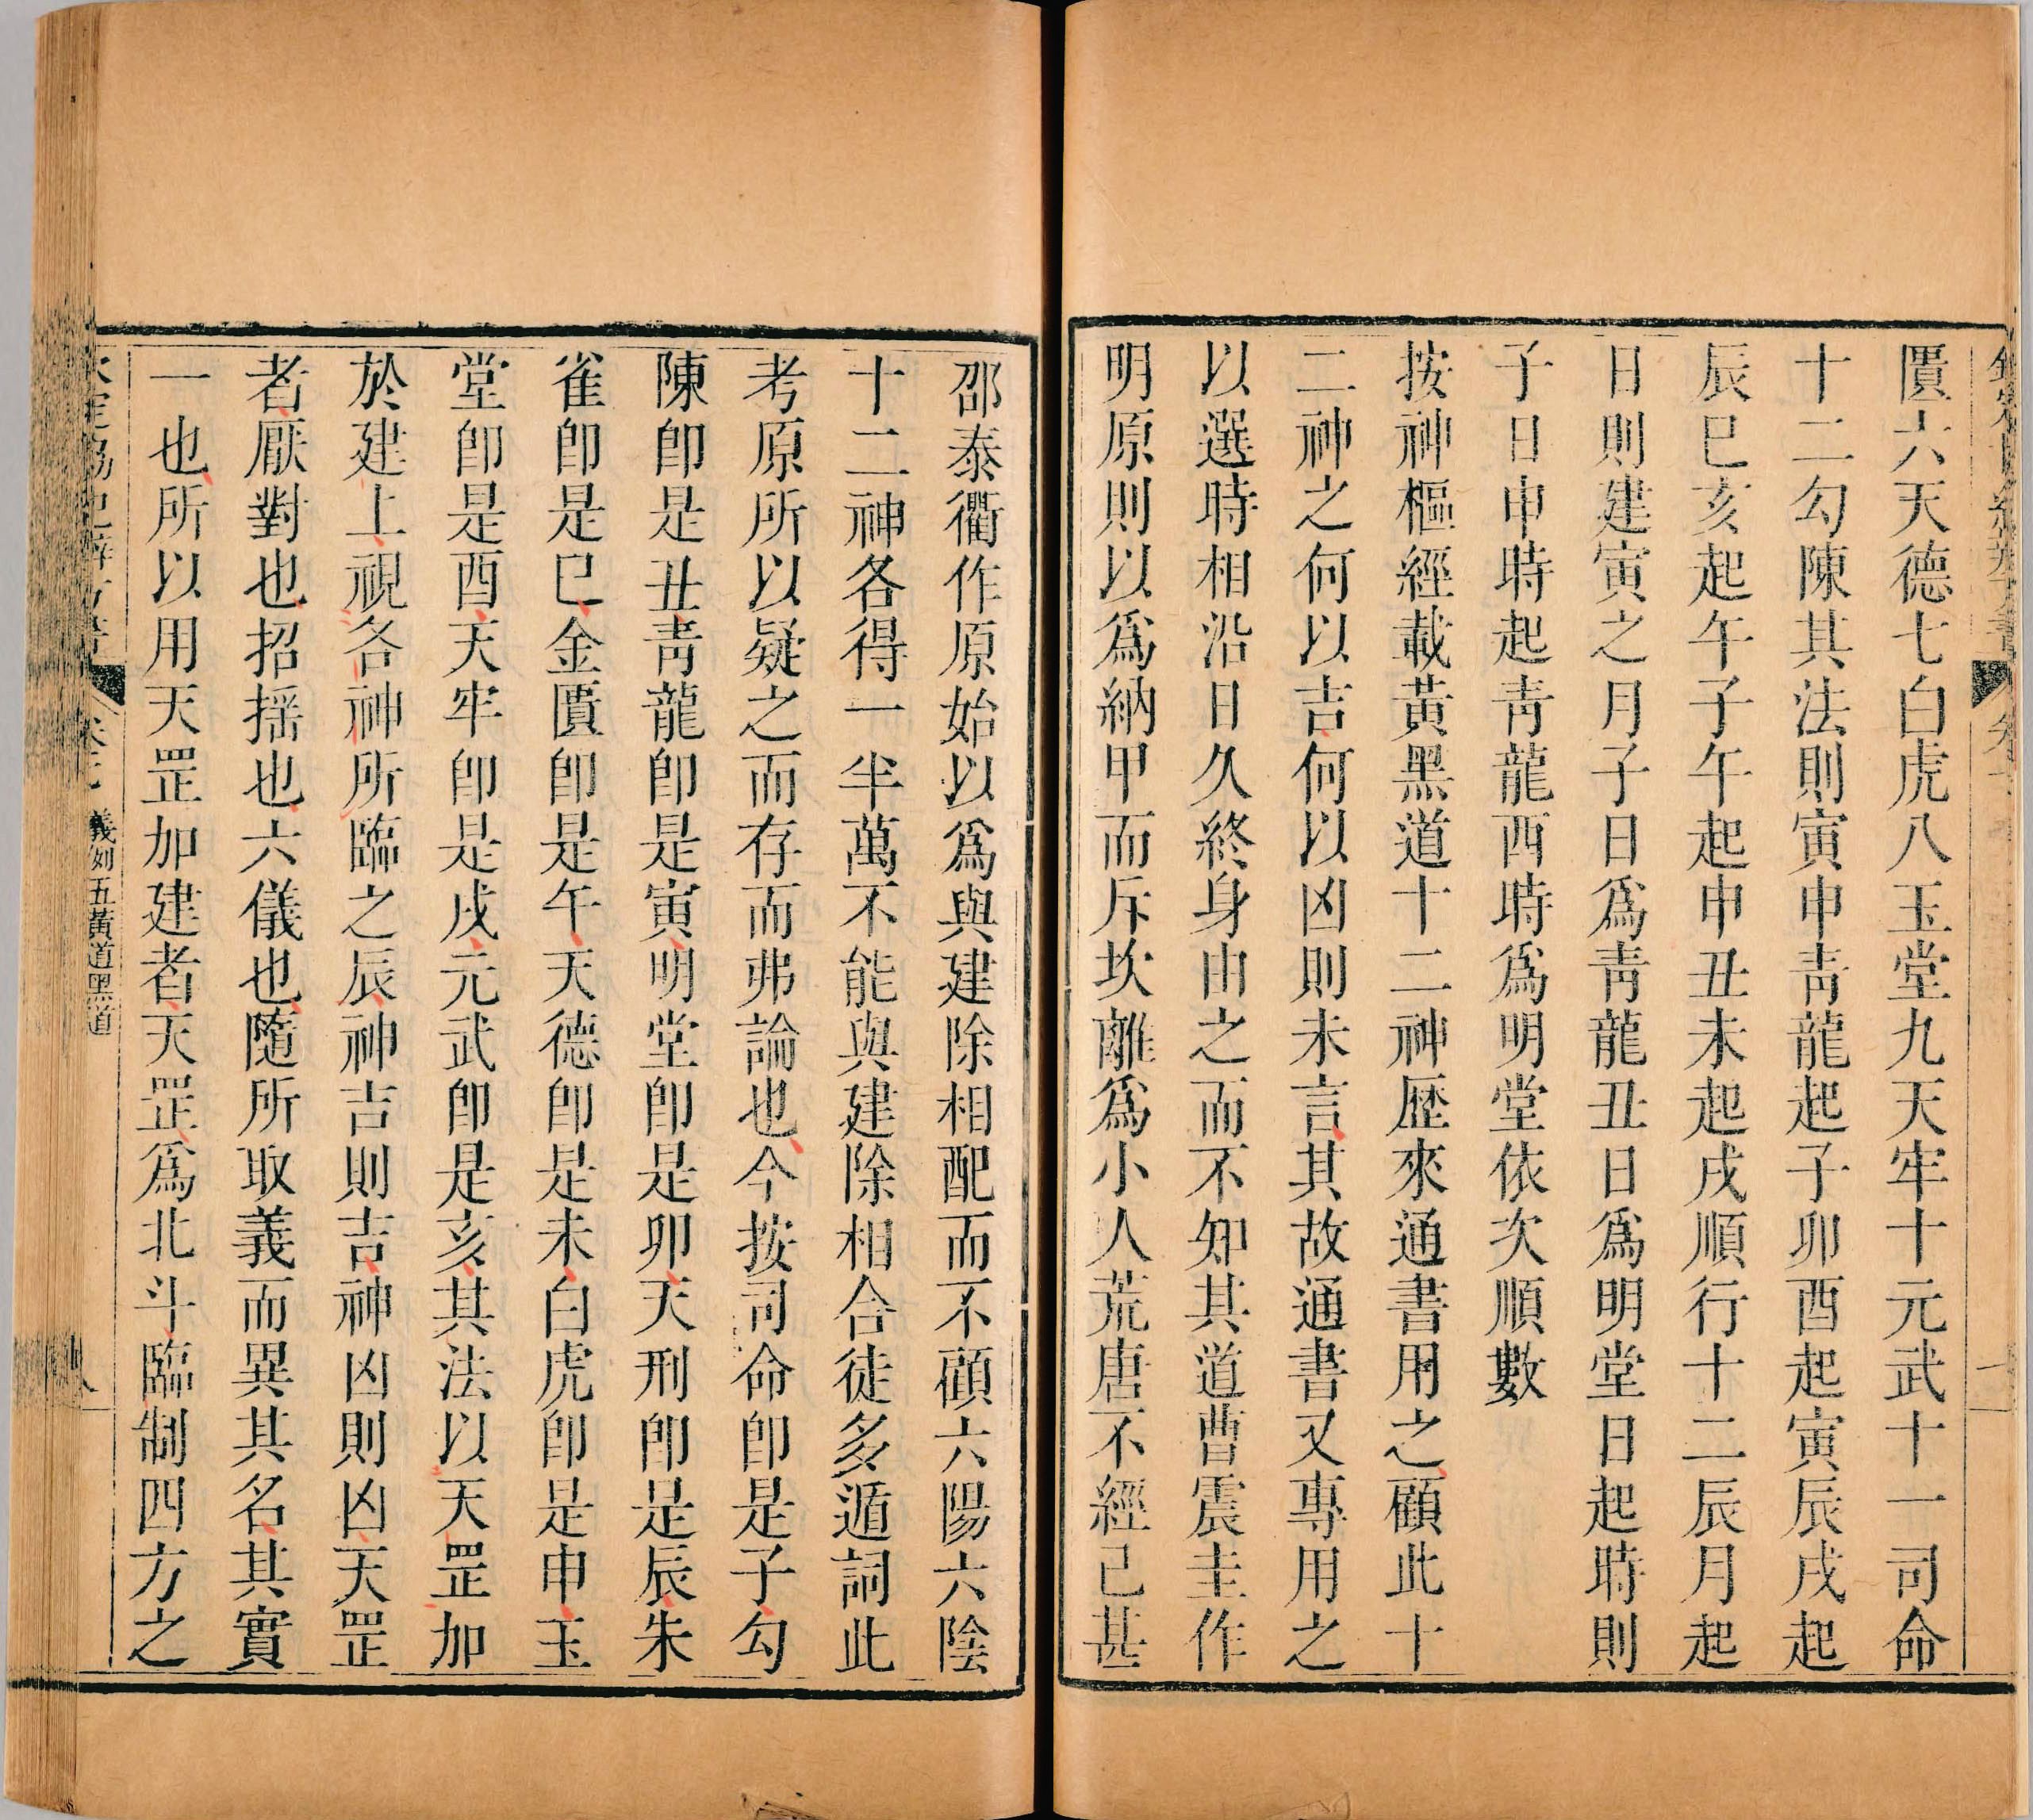 匱六天德七白虎八玉堂九天牢十元武十一司命
十二勾陳其法則寅申青龍起子卯酉起寅辰戌起
辰巳亥起午子午起申丑未起戌順行十二辰月起
日則建寅之月子日為青龍丑日為明堂日起時則
子日申時起青龍酉時為明堂依次順數
按神樞經載黃黑道十二神歷來通書用之顧此十
二神之何以吉何以凶則未言其故通書又專用之
以選時相沿日久終身由之而不知其道曹震圭作
明原則以為納甲而斥坎離為小人荒唐不經已甚
邵泰衢作原始以為與建除相配而不顧六陽六陰
十二神各得一半萬不能與建除相合徒多遁詞此
考原所以疑之而存而弗論也今按司命卽是子勾
陳卽是丑青龍卽是寅明堂卽是卯天刑卽是辰朱
雀卽是巳金匱卽是午天德卽是未白虎卽是申玉
堂卽是酉天牢卽是戌元武卽是亥其法以天罡加
於建上視各神所臨之辰神吉則吉神凶則凶天罡
者厭對也招搖也六儀也隨所取義而異其名其實
一也所以用天罡加建者天罡為北斗臨制四方之
義例五黃道黑道